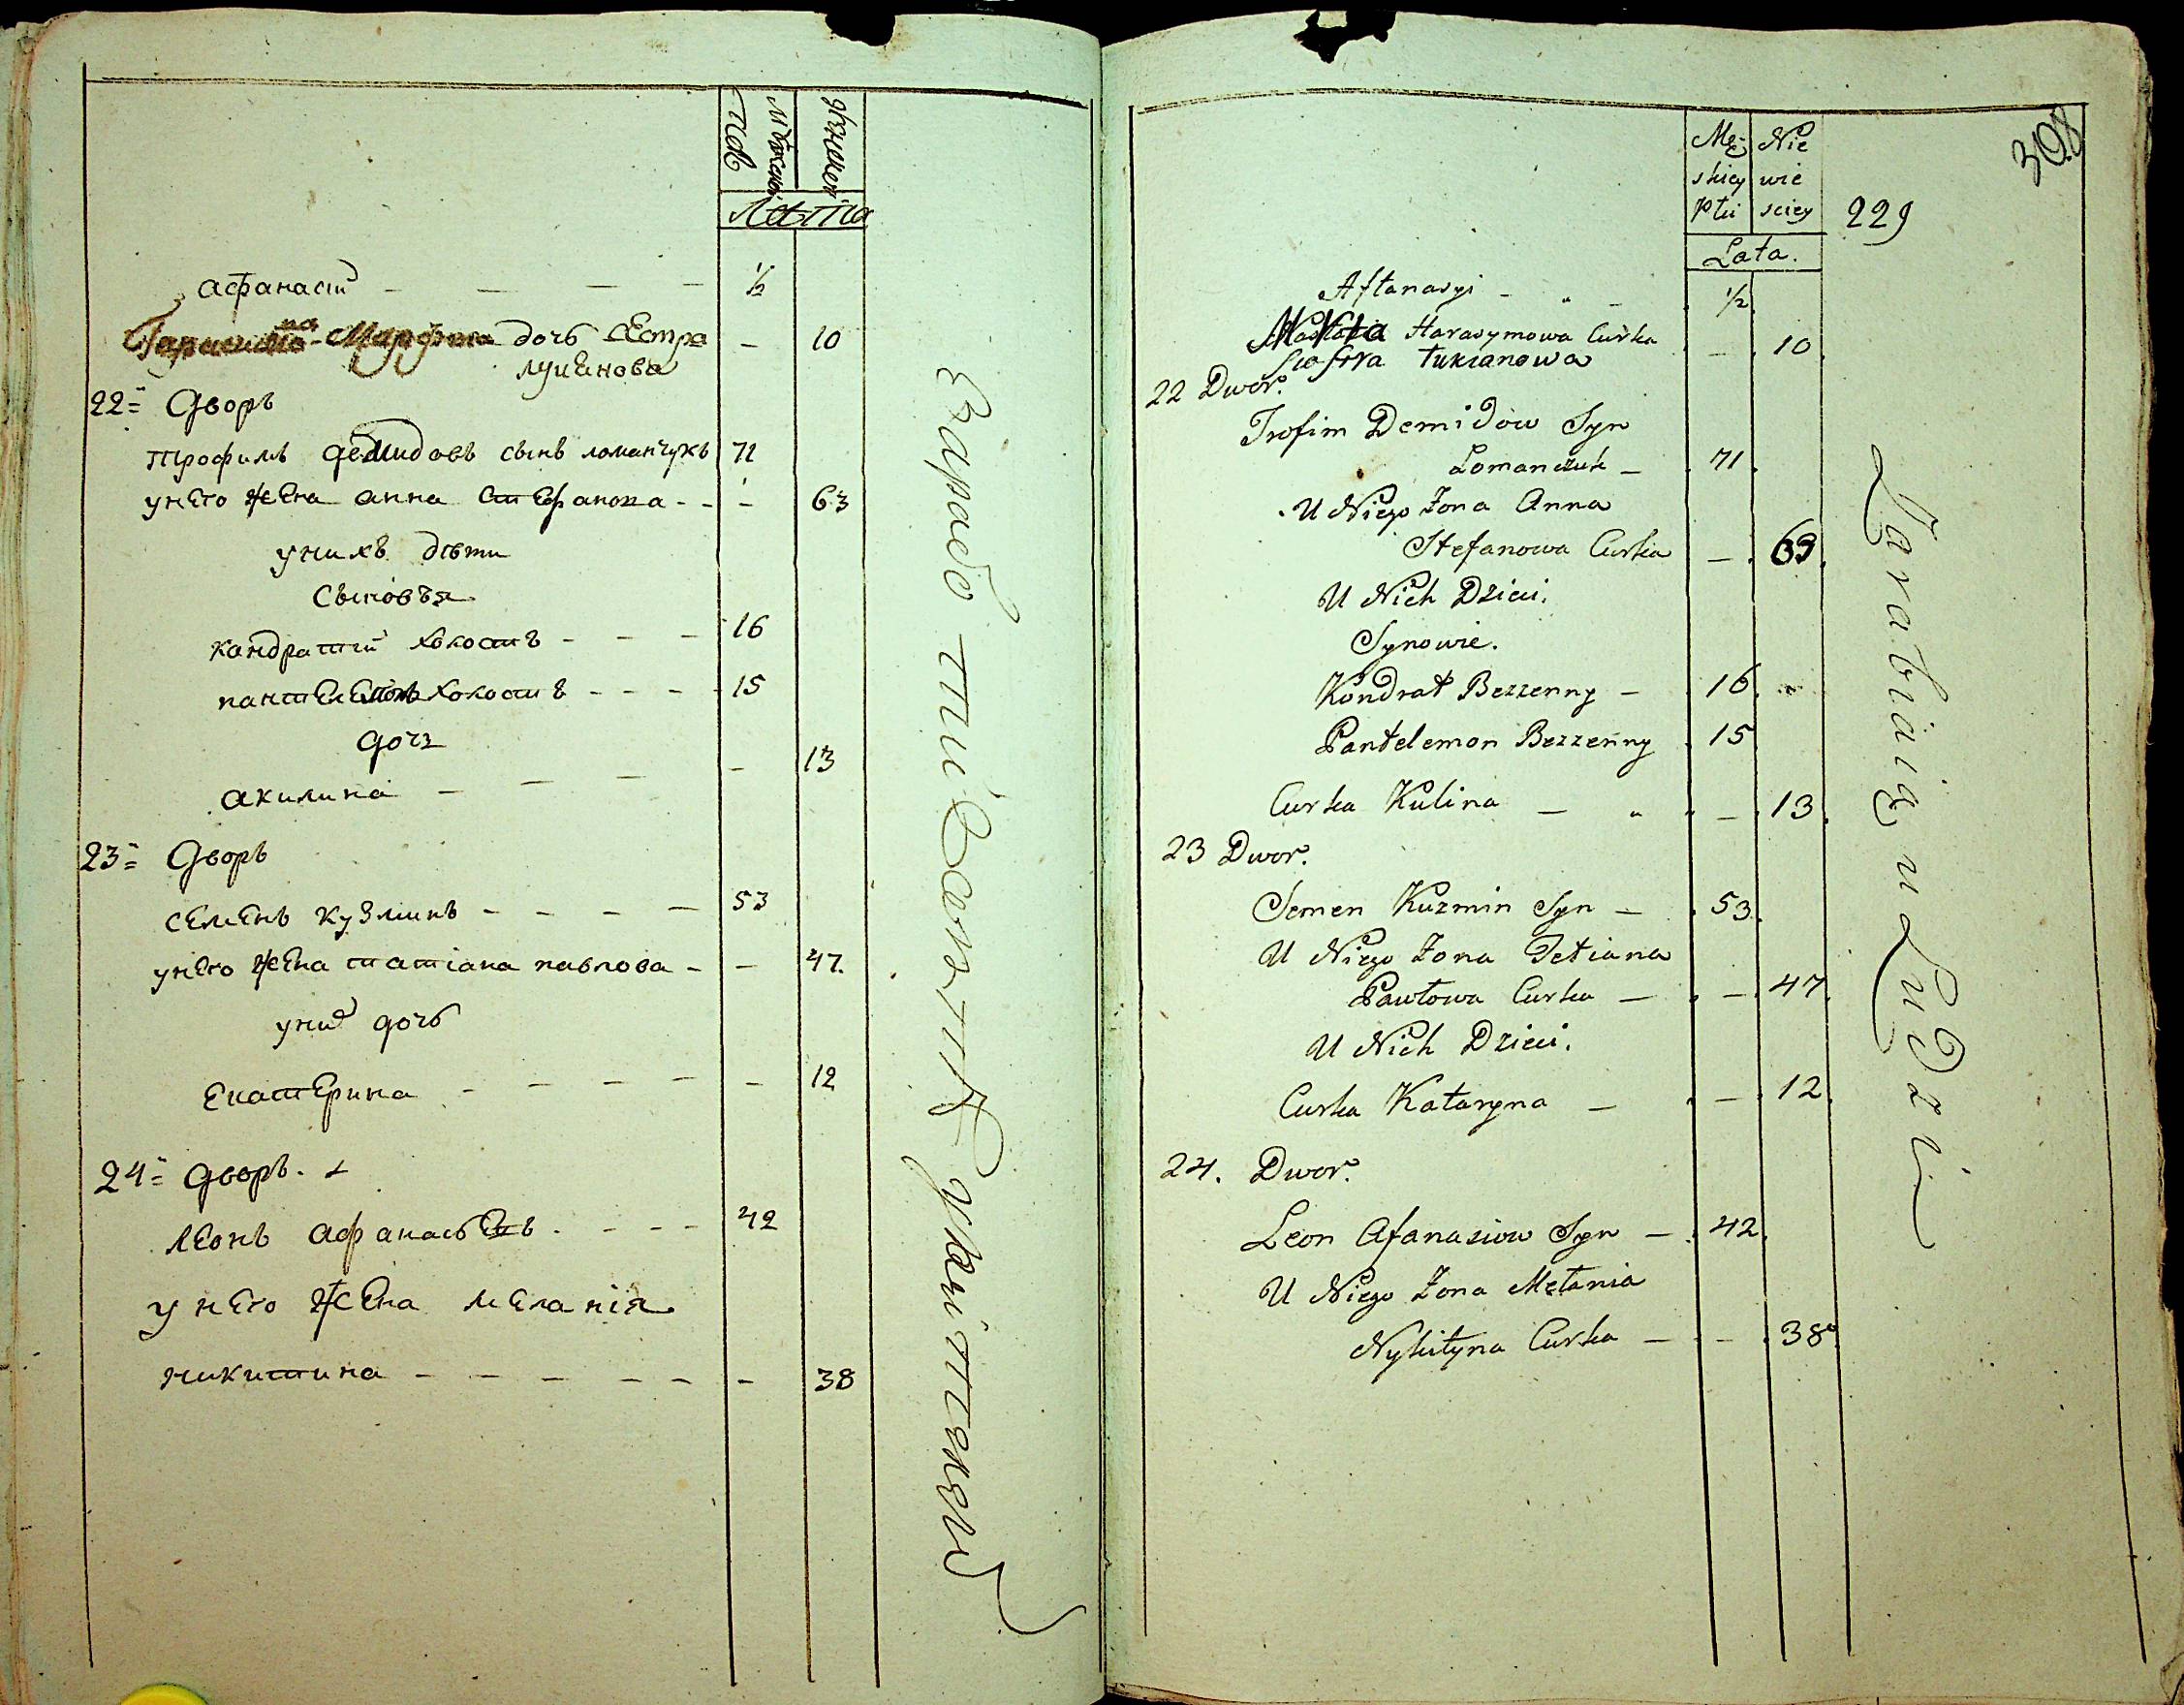 мужеска
Пов
женска
Лѣта
афанасий - - - - ½
на
Гарасимо- Марфина дочь сестра - 10
лукиянова
22= Дворъ
трофимъ демидовъ сынъ ломанчукъ 71
унего жена анна стефанова - - - 63
унихъ дѣти
Сыновья
кандратий холостъ - - - 16
пантелемонъ холостъ - - - - 15
дочь
акилина - - - - 13
23= Дворъ
семенъ кузминъ - - - - 53
унего жена татіана павлова - - 47.
унихъ дочь
екатерина - - - - - 12
24= дворъ.
леонъ афанасьевъ - - - - 42
унего жена меланія
никитина - - - - - - 38
Зарабо тиваютъ
398
229
Mę- Nie
skiey wie
Płci sciey
Lata.
Aftanasyi - „ - ½
Harasymowa Curka
Siostra Łukianowa - 10
22 Dwor.
Trofim Demidow Syn
Lomanczuk - 71
U Niego Żona Anna
Stefanowa Curka - 63
U Nich Dzieci.
Synowie.
Kondrat Bezzenny - 16
Pantelemon Bezzenny 15
Curka Kulina - „ - 13
23 Dwor.
Semen Kuzmin Syn - 53
U Niego Żona Tetiana
Pawłowa Curka - - 47
U Nich Dzieci.
Curka Kataryna - - 12
24. Dwor.
Leon Afanasiow Syn - 42
U Niego Żona Mełania
Nykityna Curka - - 38
Zarabiaią u Ludzi